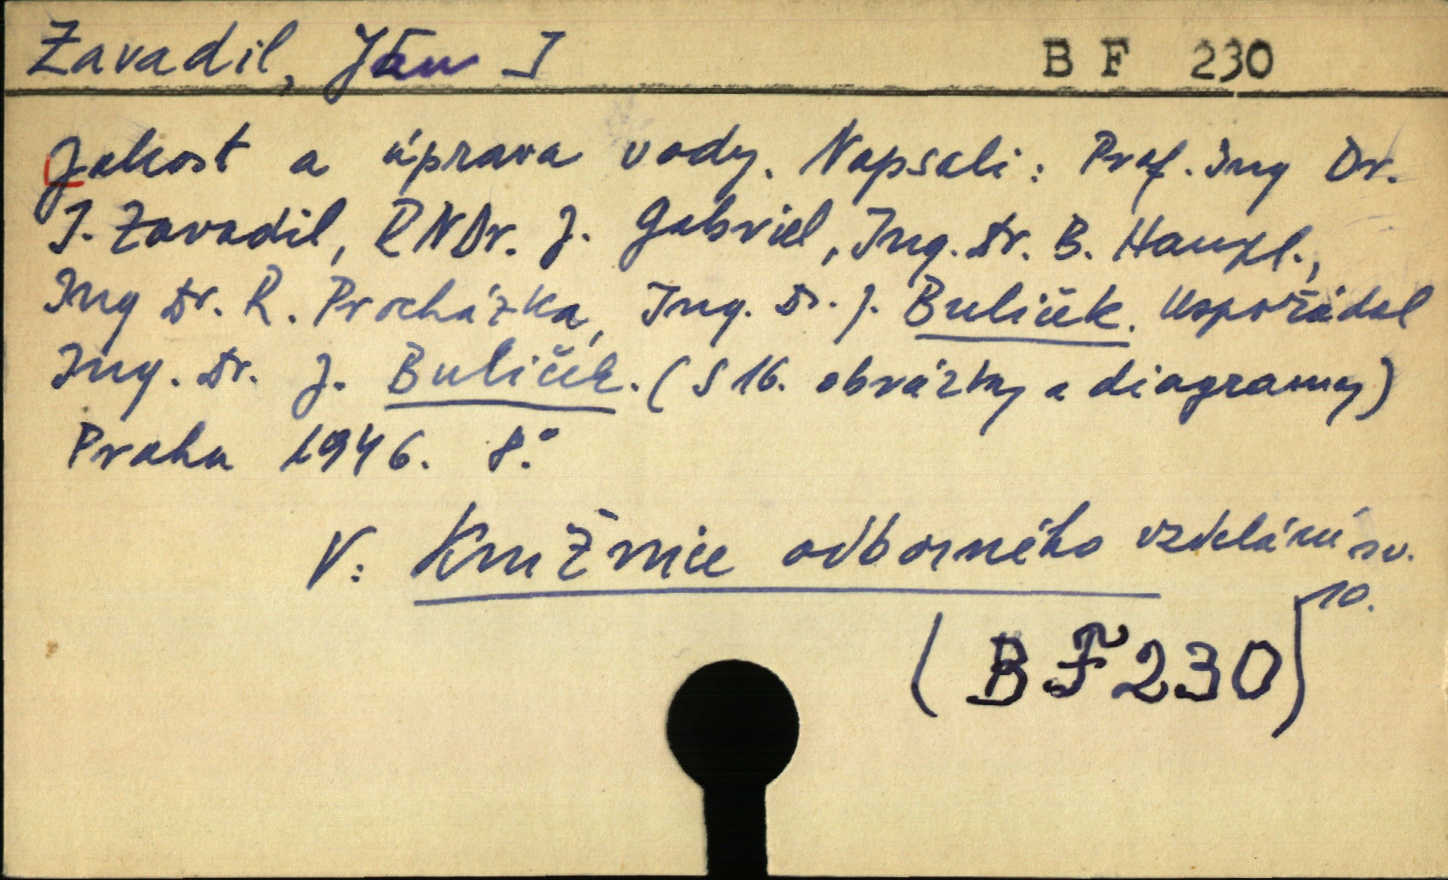 Zavadil, Ján J
B F 230
Jakost a úprava vody. Napsali: Prof. Ing Dr.
J. Zavadil, RNDr. J. Gabriel, Ing. Dr. B. Hampl.,
Ing Dr. R. Procházka, Ing. Dr. J. Bulíček. Uspořádal
Ing. Dr. J. Bulíček. (S 16. obrázky a diagramy)
Praha 1946. 8.°
V: Knižnice odborného vzdělání sv.
10.
(BF230)